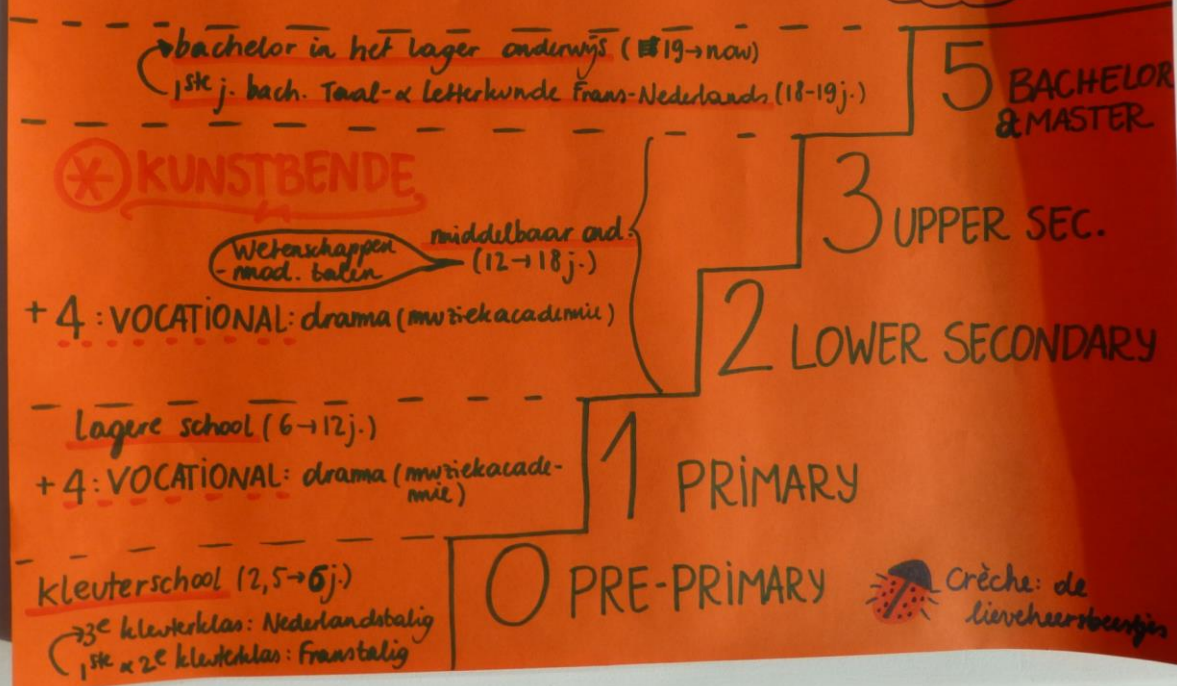 bachelor in het lager onderwijs (19→now)
1ste j. bach. Taal- & Letterkunde Frans-Nederlands (18-19j.)
5 BACHELOR
& MASTER
KUNSTBENDE
3 UPPER SEC.
middelbaar ond.
(12→18j.)
Wetenschappen
- mod. talen
+ 4: VOCATIONAL: drama (muziekacademie)
2 LOWER SECONDARY
Lagere school (6→12j.)
+ 4: VOCATIONAL: drama (muziekacade-
mie)
1 PRIMARY
kleuterschool (2,5→6j.)
3e kleuterklas: Nederlandstalig
1ste & 2e kleuterklas: Franstalig
0 PRE-PRIMARY
Crèche: de
lieveheersbeestjes